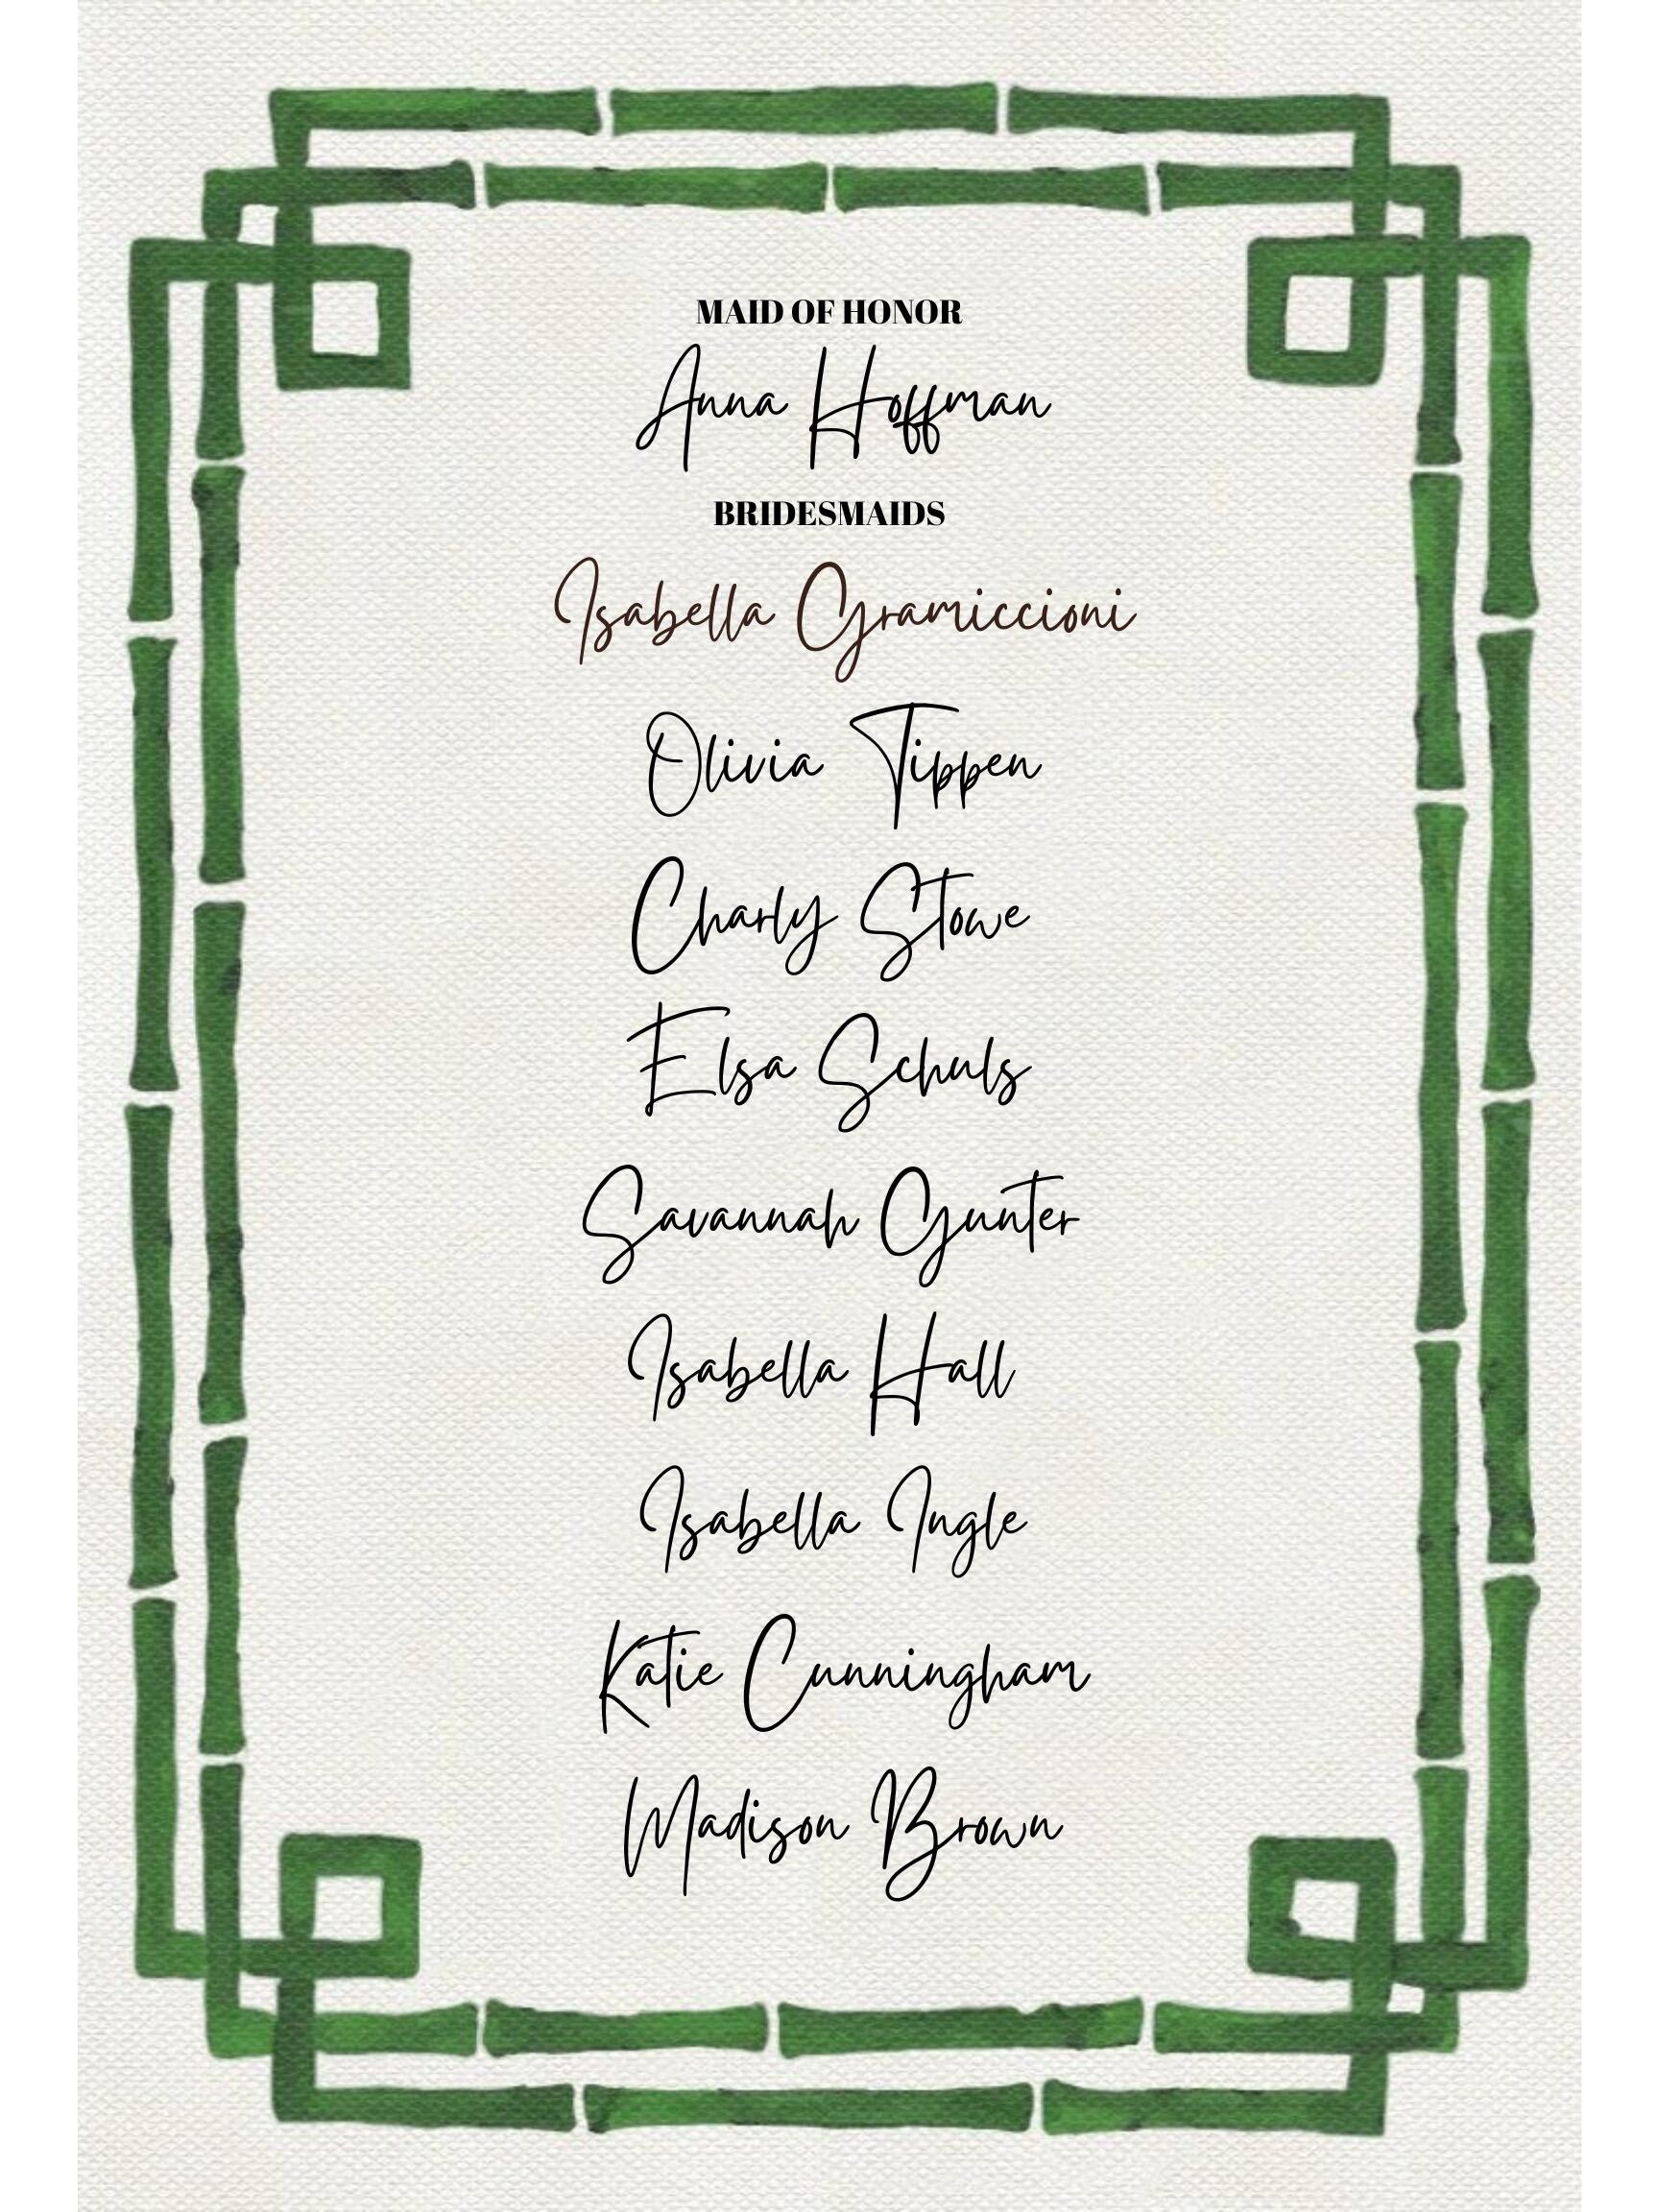 MAID OF HONOR
Anna Hoffman
BRIDESMAIDS
Isabella Gramiccioni
Olivia Tippen
Charly Stowe
Elsa Schuls
Savannah Gunter
Isabella Hall
Isabella Ingle
Katie Cunningham
Madison Brown